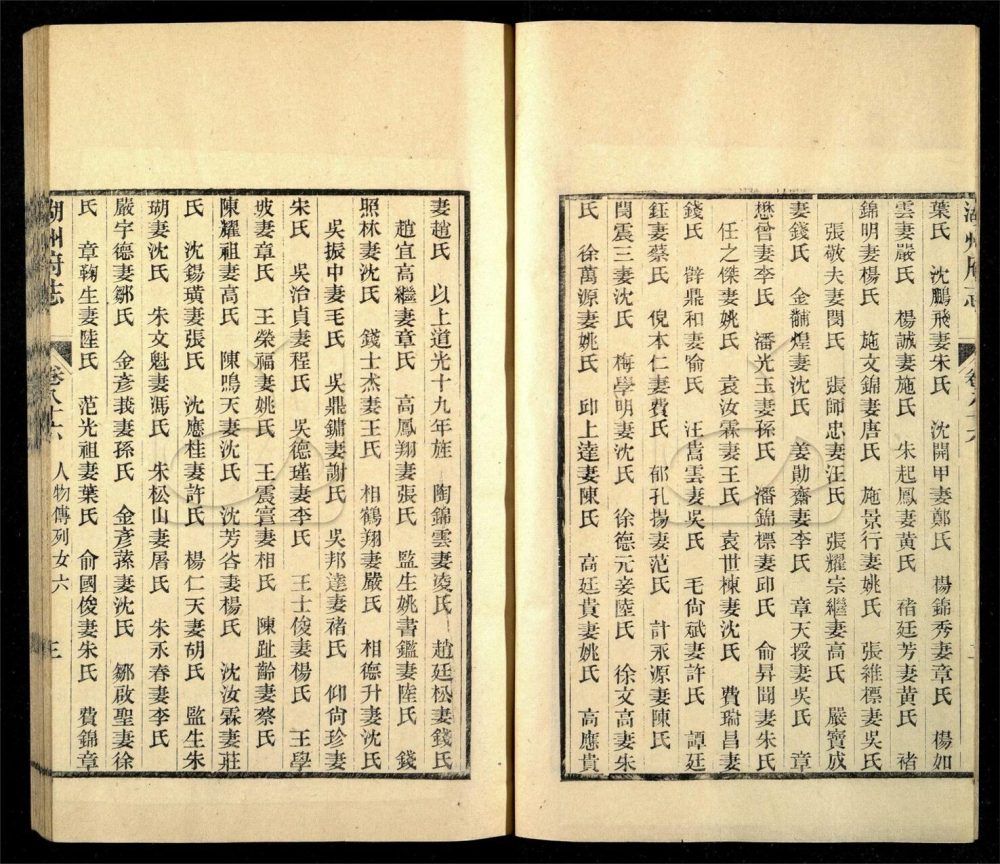 湖州府志 卷八十六
葉氏 沈鵬飛妻宋氏 沈開甲妻鄭氏 楊錦秀妻章氏 楊如
雲妻嚴氏 楊誠妻施氏 朱起鳳妻黃氏 褚廷芳妻黃氏 褚
錦明妻楊氏 施文錦妻唐氏 施景行妻姚氏 張維標妻吳氏
張敬夫妻閔氏 張師忠妻汪氏 張耀宗繼妻高氏 嚴寶成
妻錢氏 金黼煌妻沈氏 姜勛齋妻李氏 章天授妻吳氏 章
懋曾妻李氏 潘光玉妻孫氏 潘錦標妻邱氏 俞昇聞妻朱氏
任之傑妻姚氏 袁汝霖妻王氏 袁世棟妻沈氏 費瑞昌妻
錢氏 薛鼎和妻喻氏 汪嵩雲妻吳氏 毛尙斌妻許氏 譚廷
鈺妻蔡氏 倪本仁妻費氏 郁孔揚妻范氏 計永源妻陳氏
閔震三妻沈氏 梅學明妻沈氏 徐德元妾陸氏 徐文高妻朱
氏 徐萬源妻姚氏 邱上達妻陳氏 高廷貴妻姚氏 高應貴
妻趙氏 以上道光十九年旌 陶錦雲妻凌氏 趙廷松妻錢氏
趙宜高繼妻章氏 高鳳翔妻張氏 監生姚書鑑妻陸氏 錢
照林妻沈氏 錢士杰妻王氏 相鶴翔妻嚴氏 相德升妻沈氏
吳振中妻毛氏 吳鼎鏞妻謝氏 吳邦達妻褚氏 仰尙珍妻
宋氏 吳治貞妻程氏 吳德瑾妻李氏 王士俊妻楊氏 王學
坡妻章氏 王榮福妻姚氏 王震寰妻相氏 陳趾齡妻蔡氏
陳耀祖妻高氏 陳鳴天妻沈氏 沈芳谷妻楊氏 沈汝霖妻莊
氏 沈錫璜妻張氏 沈應桂妻許氏 楊仁天妻胡氏 監生朱
瑚妻沈氏 朱文魁妻馮氏 朱松山妻屠氏 朱永春妻李氏
嚴宇德妻鄒氏 金彥莪妻孫氏 金彥蓀妻沈氏 鄒啟聖妻徐
氏 章鞠生妻陸氏 范光祖妻葉氏 俞國俊妻朱氏 費錦章
湖州府志 卷八十六 人物傳列女六 三